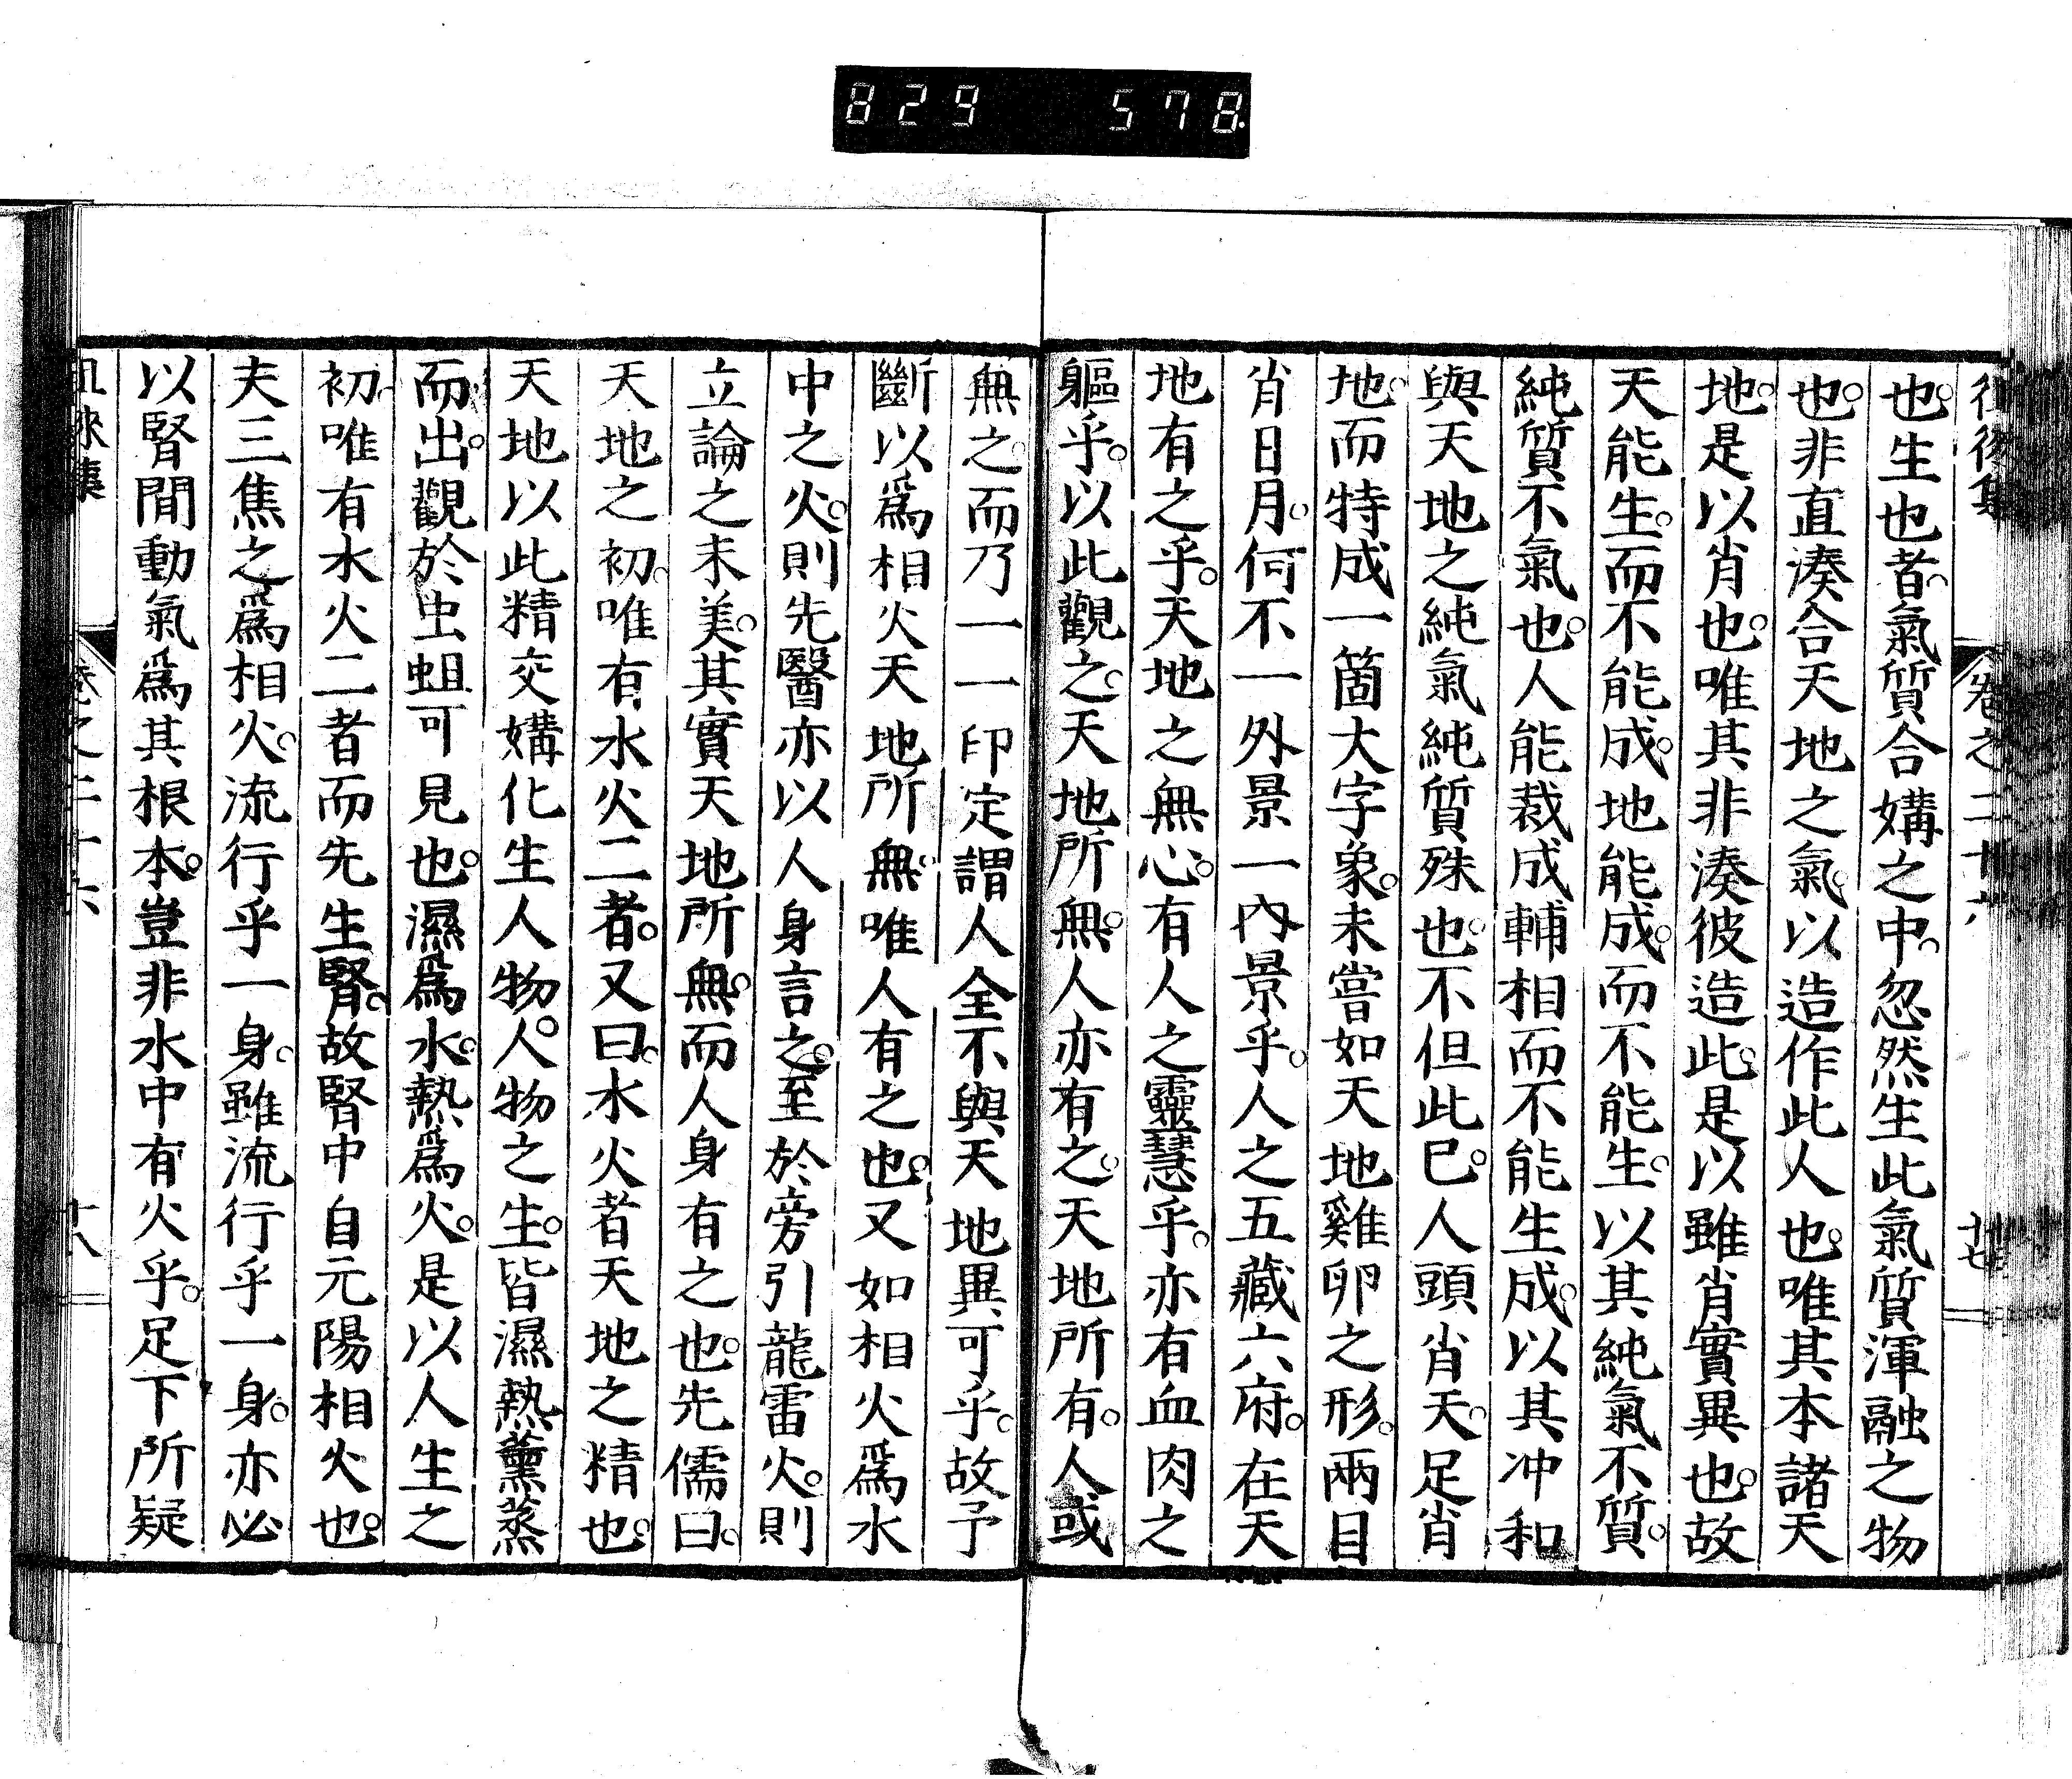 829 578
卷之二十六
十七
也。生也者。氣質合媾之中。忽然生此氣質渾融之物
也。非直湊合天地之氣。以造作此人也。唯其本諸天
地。是以肖也。唯其非湊彼造此。是以雖肖實異也。故
天能生。而不能成。地能成。而不能生。以其純氣不質。
純質不氣也。人能裁成輔相而不能生成。以其冲和
與天地之純氣純質殊也。不但此已。人頭肖天。足肖
地。而特成一箇大字象。未嘗如天地雞卵之形。兩目
肖日月。何不一外景一內景乎。人之五藏六府。在天
地有之乎。天地之無心。有人之靈慧乎。亦有血肉之
軀乎。以此觀之。天地所無。人亦有之。天地所有。人或
無之。而乃一一印定謂人全不與天地異可乎。故予
斷以爲相火天地所無。唯人有之也。又如相火爲水
中之火。則先醫亦以人身言之。至於旁引龍雷火。則
立論之未美。其實天地所無。而人身有之也。先儒曰。
天地之初。唯有水火二者。又曰。水火者天地之精也。
天地以此精交媾化生人物。人物之生。皆濕熱薰蒸
而出。觀於虫蛆可見也。濕爲水。熱爲火。是以人生之
初。唯有水火二者而先生腎。故腎中自元陽相火也。
夫三焦之爲相火。流行乎一身。雖流行乎一身。亦必
以腎間動氣爲其根本。豈非水中有火乎。足下所疑
徠集
卷之二十六
十八